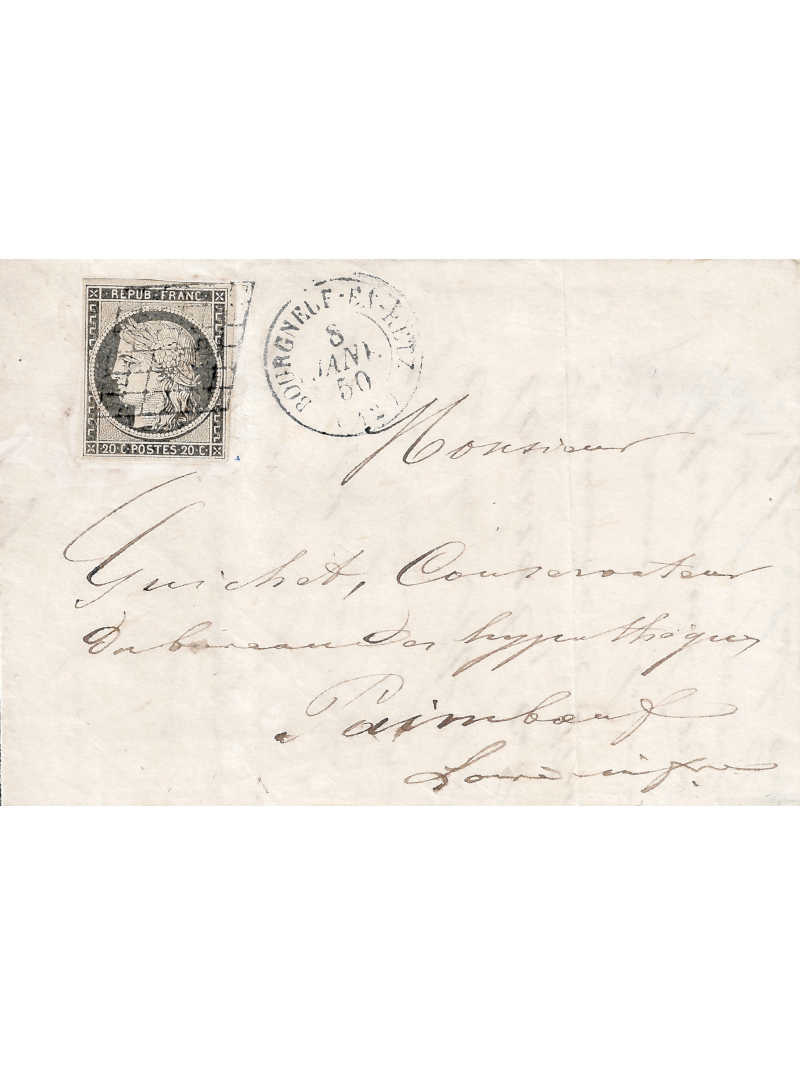 REPUB·FRANC·
20·C·POSTES·20·C·
BOURGNEUF-EN-RETZ
8
JANV.
50
Monsieur
Guichet, Conservateur
Du bureau des hypothèques
Paimboeuf
Loire infre